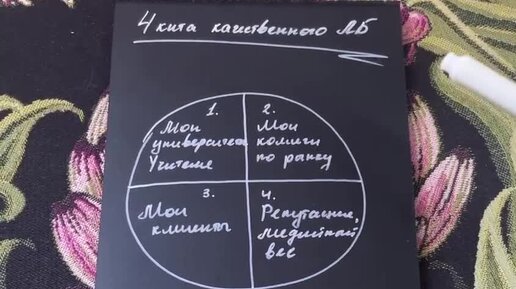 4 кита качественного ЛБ
1.
Мои
университеты
Учителя
2.
Мои
коллеги
по рынку
3.
Мои
клиенты
4.
Репутация,
медийный
вес